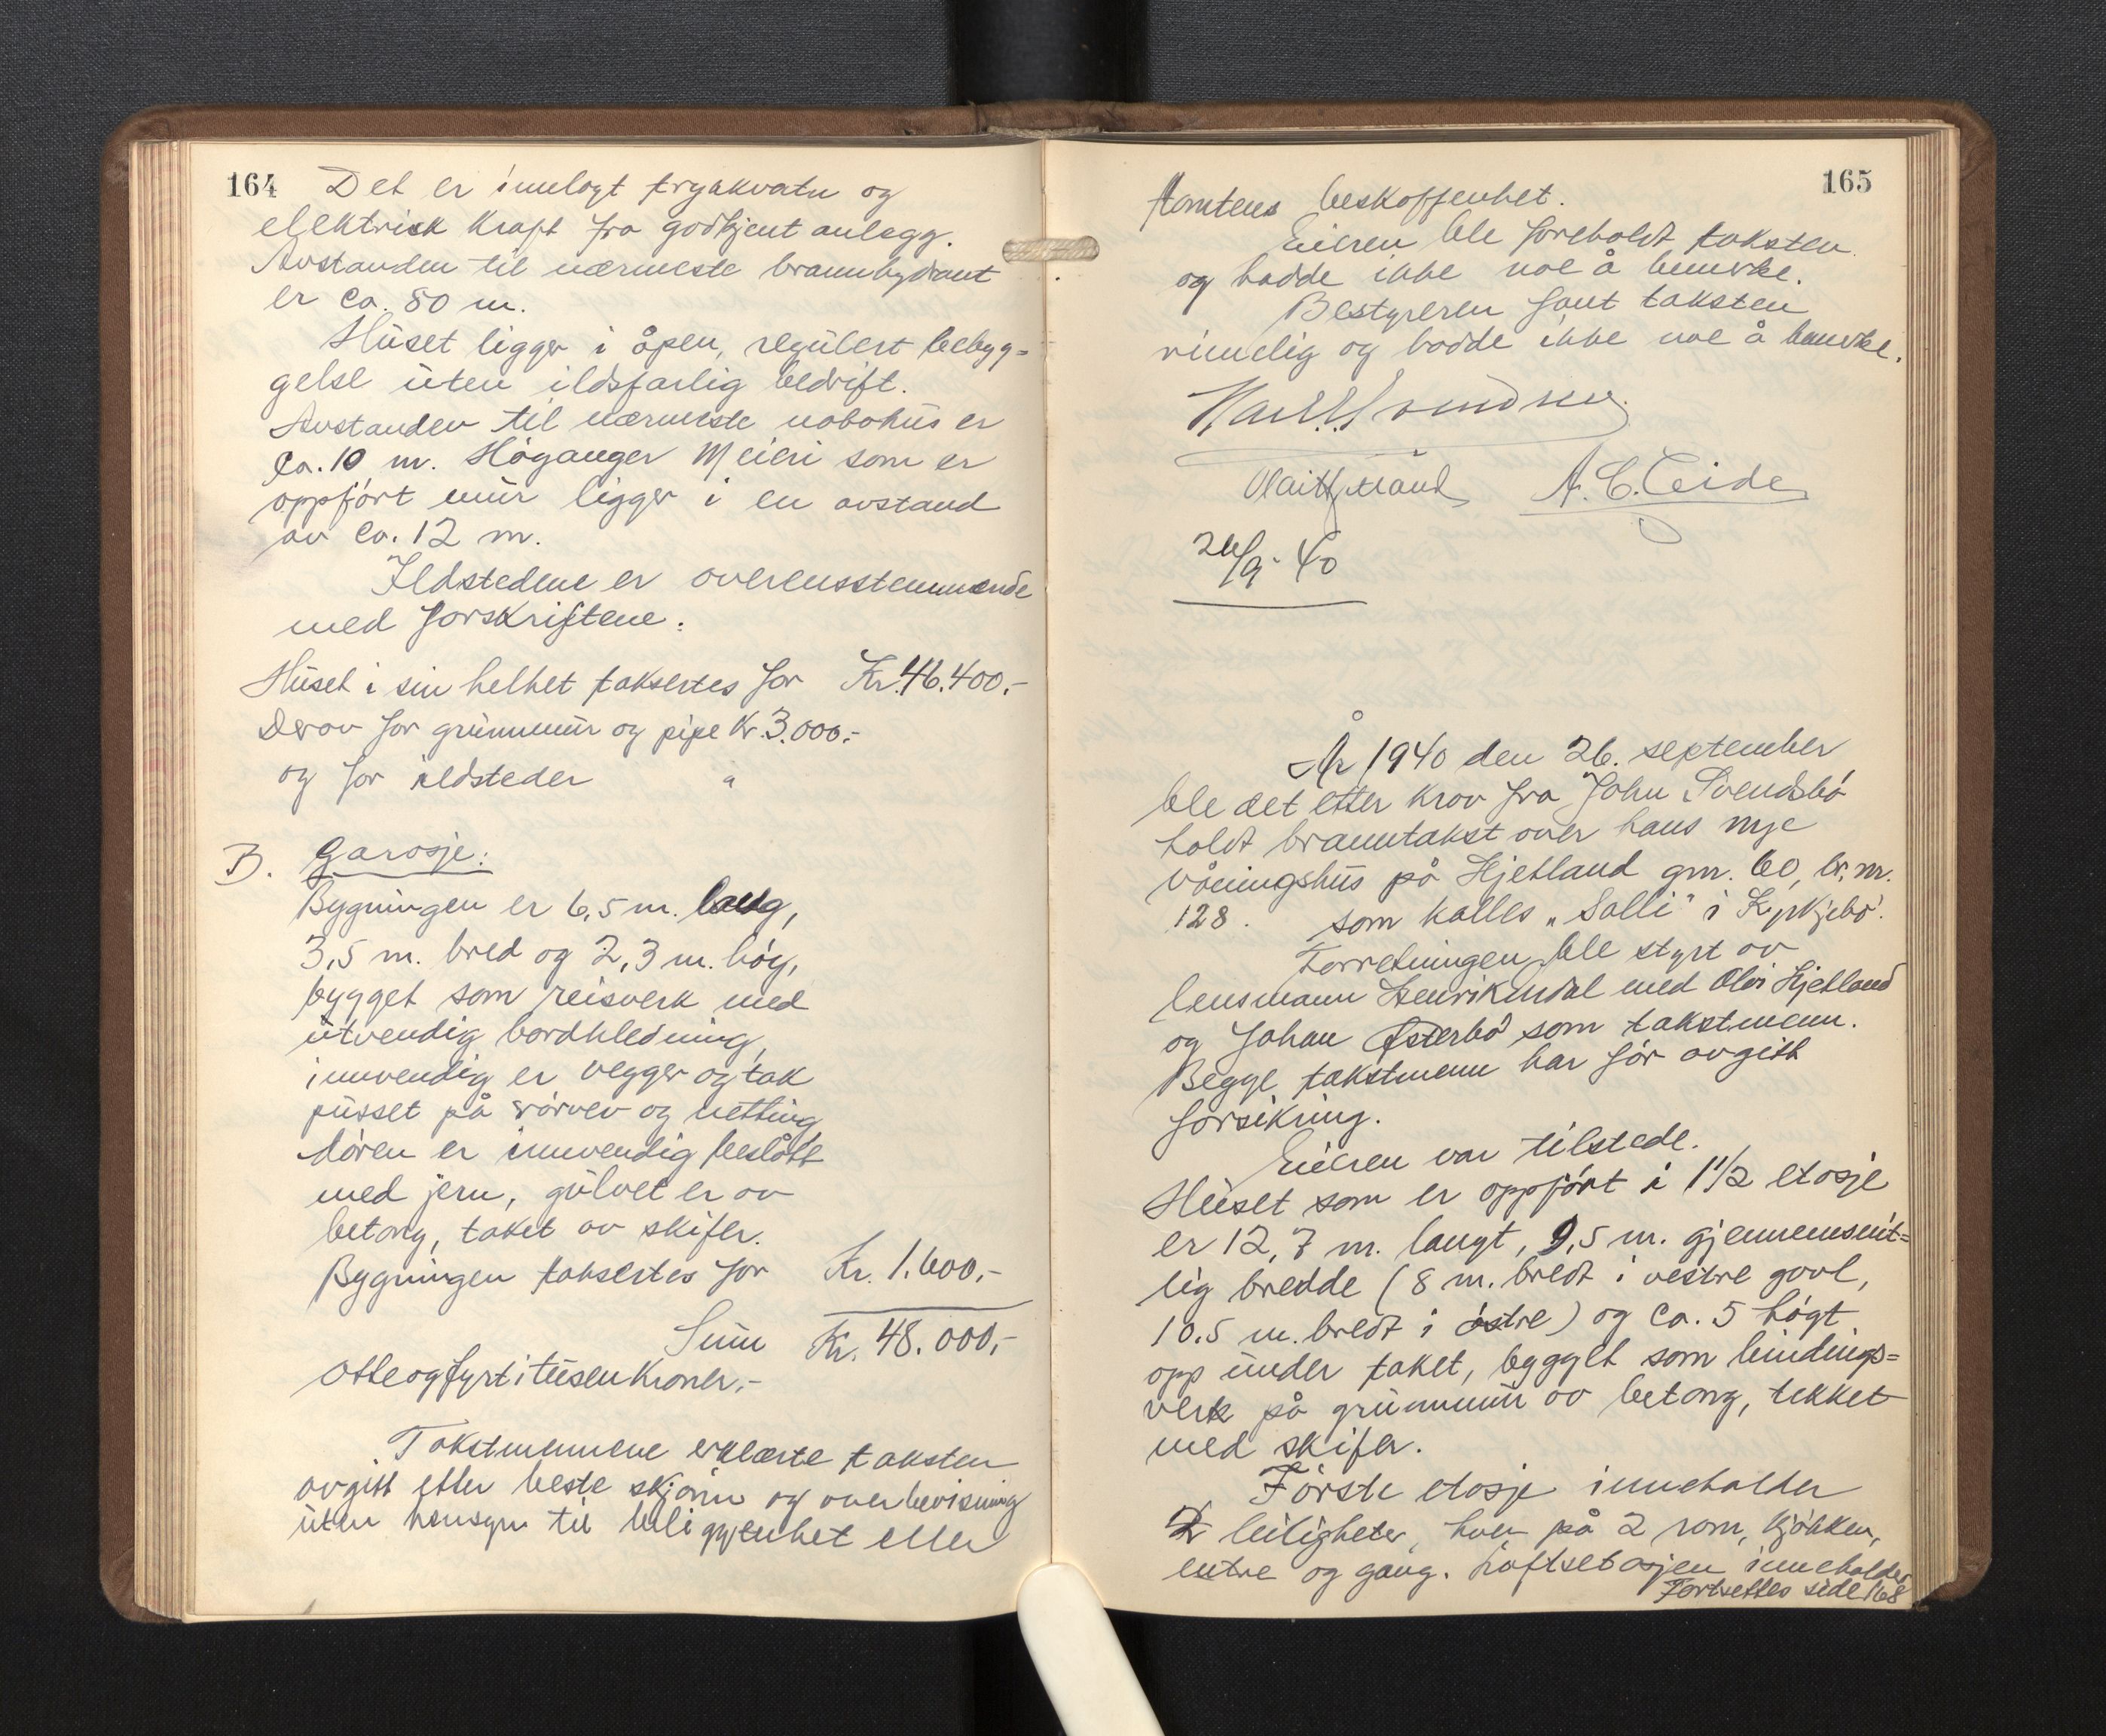 164
Det er innlagt trykkvatn og
elektrisk kraft fra godkjent anlegg.
Avstanden til nærmeste brannhydrant
er ca. 80 m.
Huset ligger i åpen, regulert bebyg=
gelse uten ildsfarlig bedrift.
Avstanden til nærmeste nabohus er
ca. 10 m. Höganger Meieri som er
oppfört mur ligger i en avstand
av ca. 12 m.
Ildstedene er overensstemmende
med forskriftene.
Huset i sin helhet taksertes for Kr. 46.400.-
Derav for grunnmur og pipe Kr. 3.000.-
og for ildsteder "
B. Garasje:
Bygningen er 6,5 m. lang,
3,5 m. bred og 2,3 m. höy,
bygget som reisverk med
utvendig bordkledning,
innvendig er vegger og tak
pusset på rörvev og netting
dören er innvendig beslått
med jern, gulvet er av
betong, taket av skifer.
Bygningen taksertes for Kr. 1.600,-
Sum Kr. 48.000,-
Otteogfyrtitusenkroner.-
Takstmennene erklærte taksten
avgitt etter beste skjönn og overbevisning
uten hensyn til beliggenhet eller
165
tomtens beskaffenhet.
Eieren ble foreholdt taksten
og hadde ikke noe å bemerke.
Bestyreren fant taksten
rimelig og hadde ikke noe å bemerke.
A. C. Eide
26/9-40
År 1940 den 26. september
ble det etter krav fra John Svendsbö
holdt branntakst over hans nye
våningshus på Hjetland gnr. 60, br.nr.
128. som kalles „Solli" i Kyrkjebö.
Forretningen ble styrt av
lensmann Henrik Indal med Olai Hjetland
og Johan Österbö som takstmenn.
Begge takstmenn har för avgitt
forsikring.
Eieren var tilstede.
Huset som er oppfört i 1 1/2 etasje
er 12,7 m. langt, 9,5 m. gjennemsnit=
lig bredde (8 m. bredt i vestre gavl,
10.5 m. bredt i östre) og ca. 5 högt
opp under taket, bygget som bindings=
verk på grunnmur av betong, tekket
med skifer.
Förste etasje inneholder
2 leiligheter, hver på 2 rom, kjökken,
entre og gang. Loftsetasjen inneholder
Fortsettes side 168